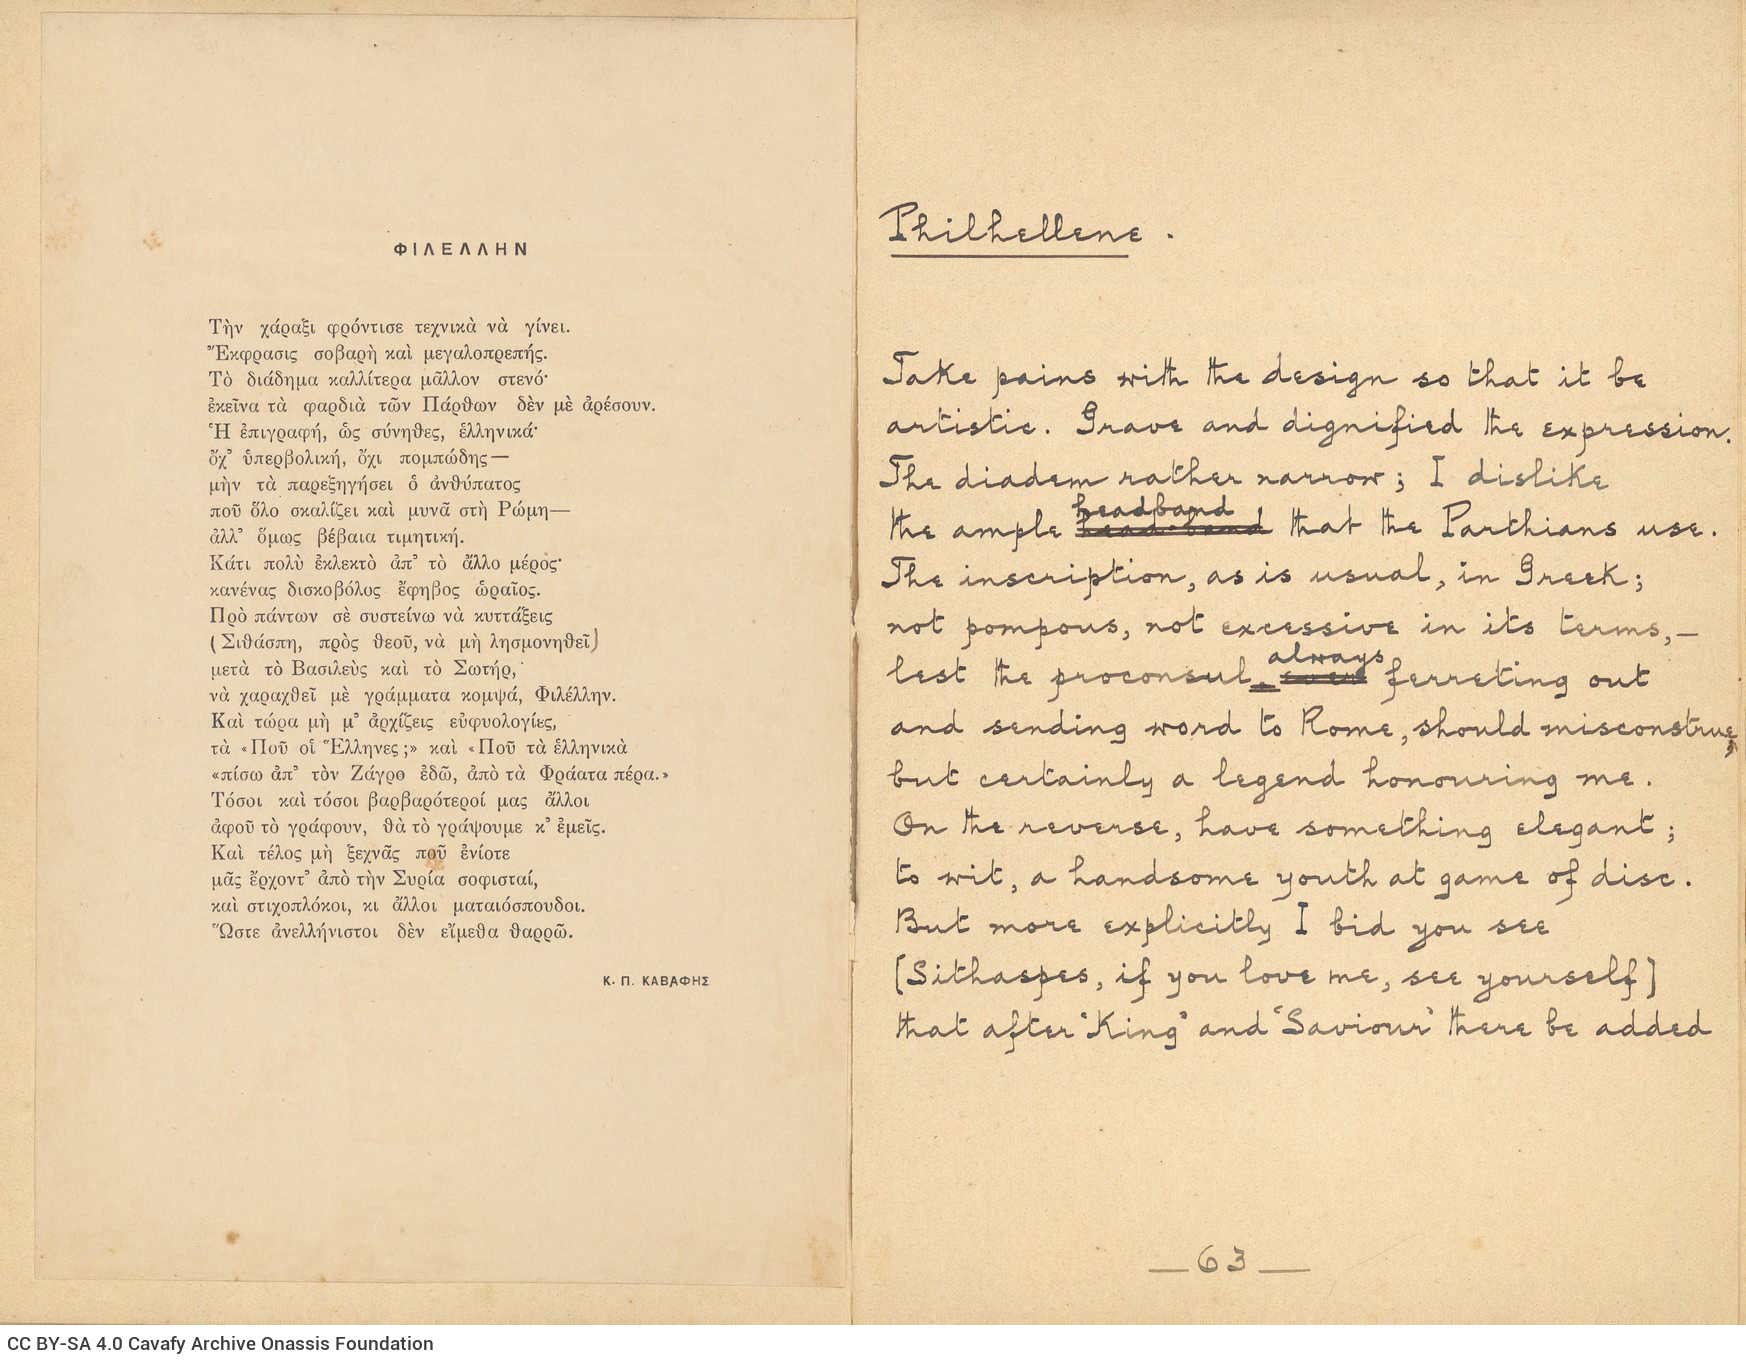 ΦΙΛΕΛΛΗΝ
Τὴν χάραξι φρόντισε τεχνικὰ νὰ γίνει.
Ἔκφρασις σοβαρὴ καὶ μεγαλοπρεπής.
Τὸ διάδημα καλλίτερα μᾶλλον στενό·
ἐκεῖνα τὰ φαρδιὰ τῶν Πάρθων δὲν μὲ ἀρέσουν.
Ἡ ἐπιγραφή, ὡς σύνηθες, ἑλληνικά·
ὄχ’ ὑπερβολική, ὄχι πομπώδης—
μὴν τὰ παρεξηγήσει ὁ ἀνθύπατος
ποῦ ὅλο σκαλίζει καὶ μυνᾶ στὴ Ρώμη—
ἀλλ’ ὅμως βέβαια τιμητική.
Κάτι πολὺ ἐκλεκτὸ ἀπ’ τὸ ἄλλο μέρος·
κανένας δισκοβόλος ἔφηβος ὡραῖος.
Πρὸ πάντων σὲ συστείνω νὰ κυττάξεις
(Σιθάσπη, πρὸς θεοῦ, νὰ μὴ λησμονηθεῖ)
μετὰ τὸ Βασιλεὺς καὶ τὸ Σωτήρ,
νὰ χαραχθεῖ μὲ γράμματα κομψά, Φιλέλλην.
Καὶ τώρα μὴ μ’ ἀρχίζεις εὐφυολογίες,
τὰ «Ποῦ οἱ Ἕλληνες;» καὶ «Ποῦ τὰ ἑλληνικὰ
«πίσω ἀπ’ τὸν Ζάγρο ἐδῶ, ἀπὸ τὰ Φράατα πέρα.»
Τόσοι καὶ τόσοι βαρβαρότεροί μας ἄλλοι
ἀφοῦ τὸ γράφουν, θὰ τὸ γράψουμε κ’ ἐμεῖς.
Καὶ τέλος μὴ ξεχνᾶς ποῦ ἐνίοτε
μᾶς ἔρχοντ’ ἀπὸ τὴν Συρία σοφισταί,
καὶ στιχοπλόκοι, κι ἄλλοι ματαιόσπουδοι.
Ὥστε ἀνελλήνιστοι δὲν εἴμεθα θαρρῶ.
Κ. Π. ΚΑΒΑΦΗΣ
Philhellene.
Take pains with the design so that it be
artistic. Grave and dignified the expression.
The diadem rather narrow; I dislike
headband
the ample head-band that the Parthians use.
The inscription, as is usual, in Greek;
not pompous, not excessive in its terms,—
always
lest the proconsul, ferreting out
and sending word to Rome, should misconstrue,
but certainly a legend honouring me.
On the reverse, have something elegant;
to wit, a handsome youth at game of disc.
But more explicitly I bid you see
[Sithaspes, if you love me, see yourself]
that after ‘King’ and ‘Saviour’ there be added
— 63 —
CC BY-SA 4.0 Cavafy Archive Onassis Foundation